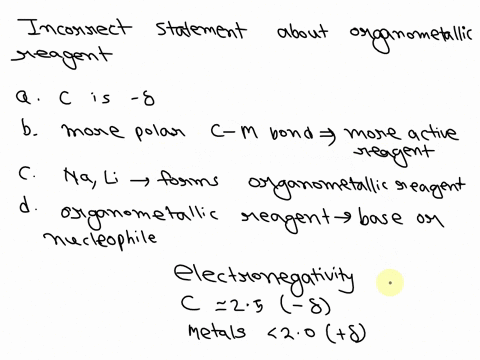 Incorrect statement about organometallic
reagent
a. C is -δ
b. more polar C-M bond ⇒ more active
reagent
c. Na, Li → forms organometallic reagent
d. organometallic reagent → base or
nucleophile
electronegativity
C ≈ 2.5 (-δ)
metals < 2.0 (+δ)